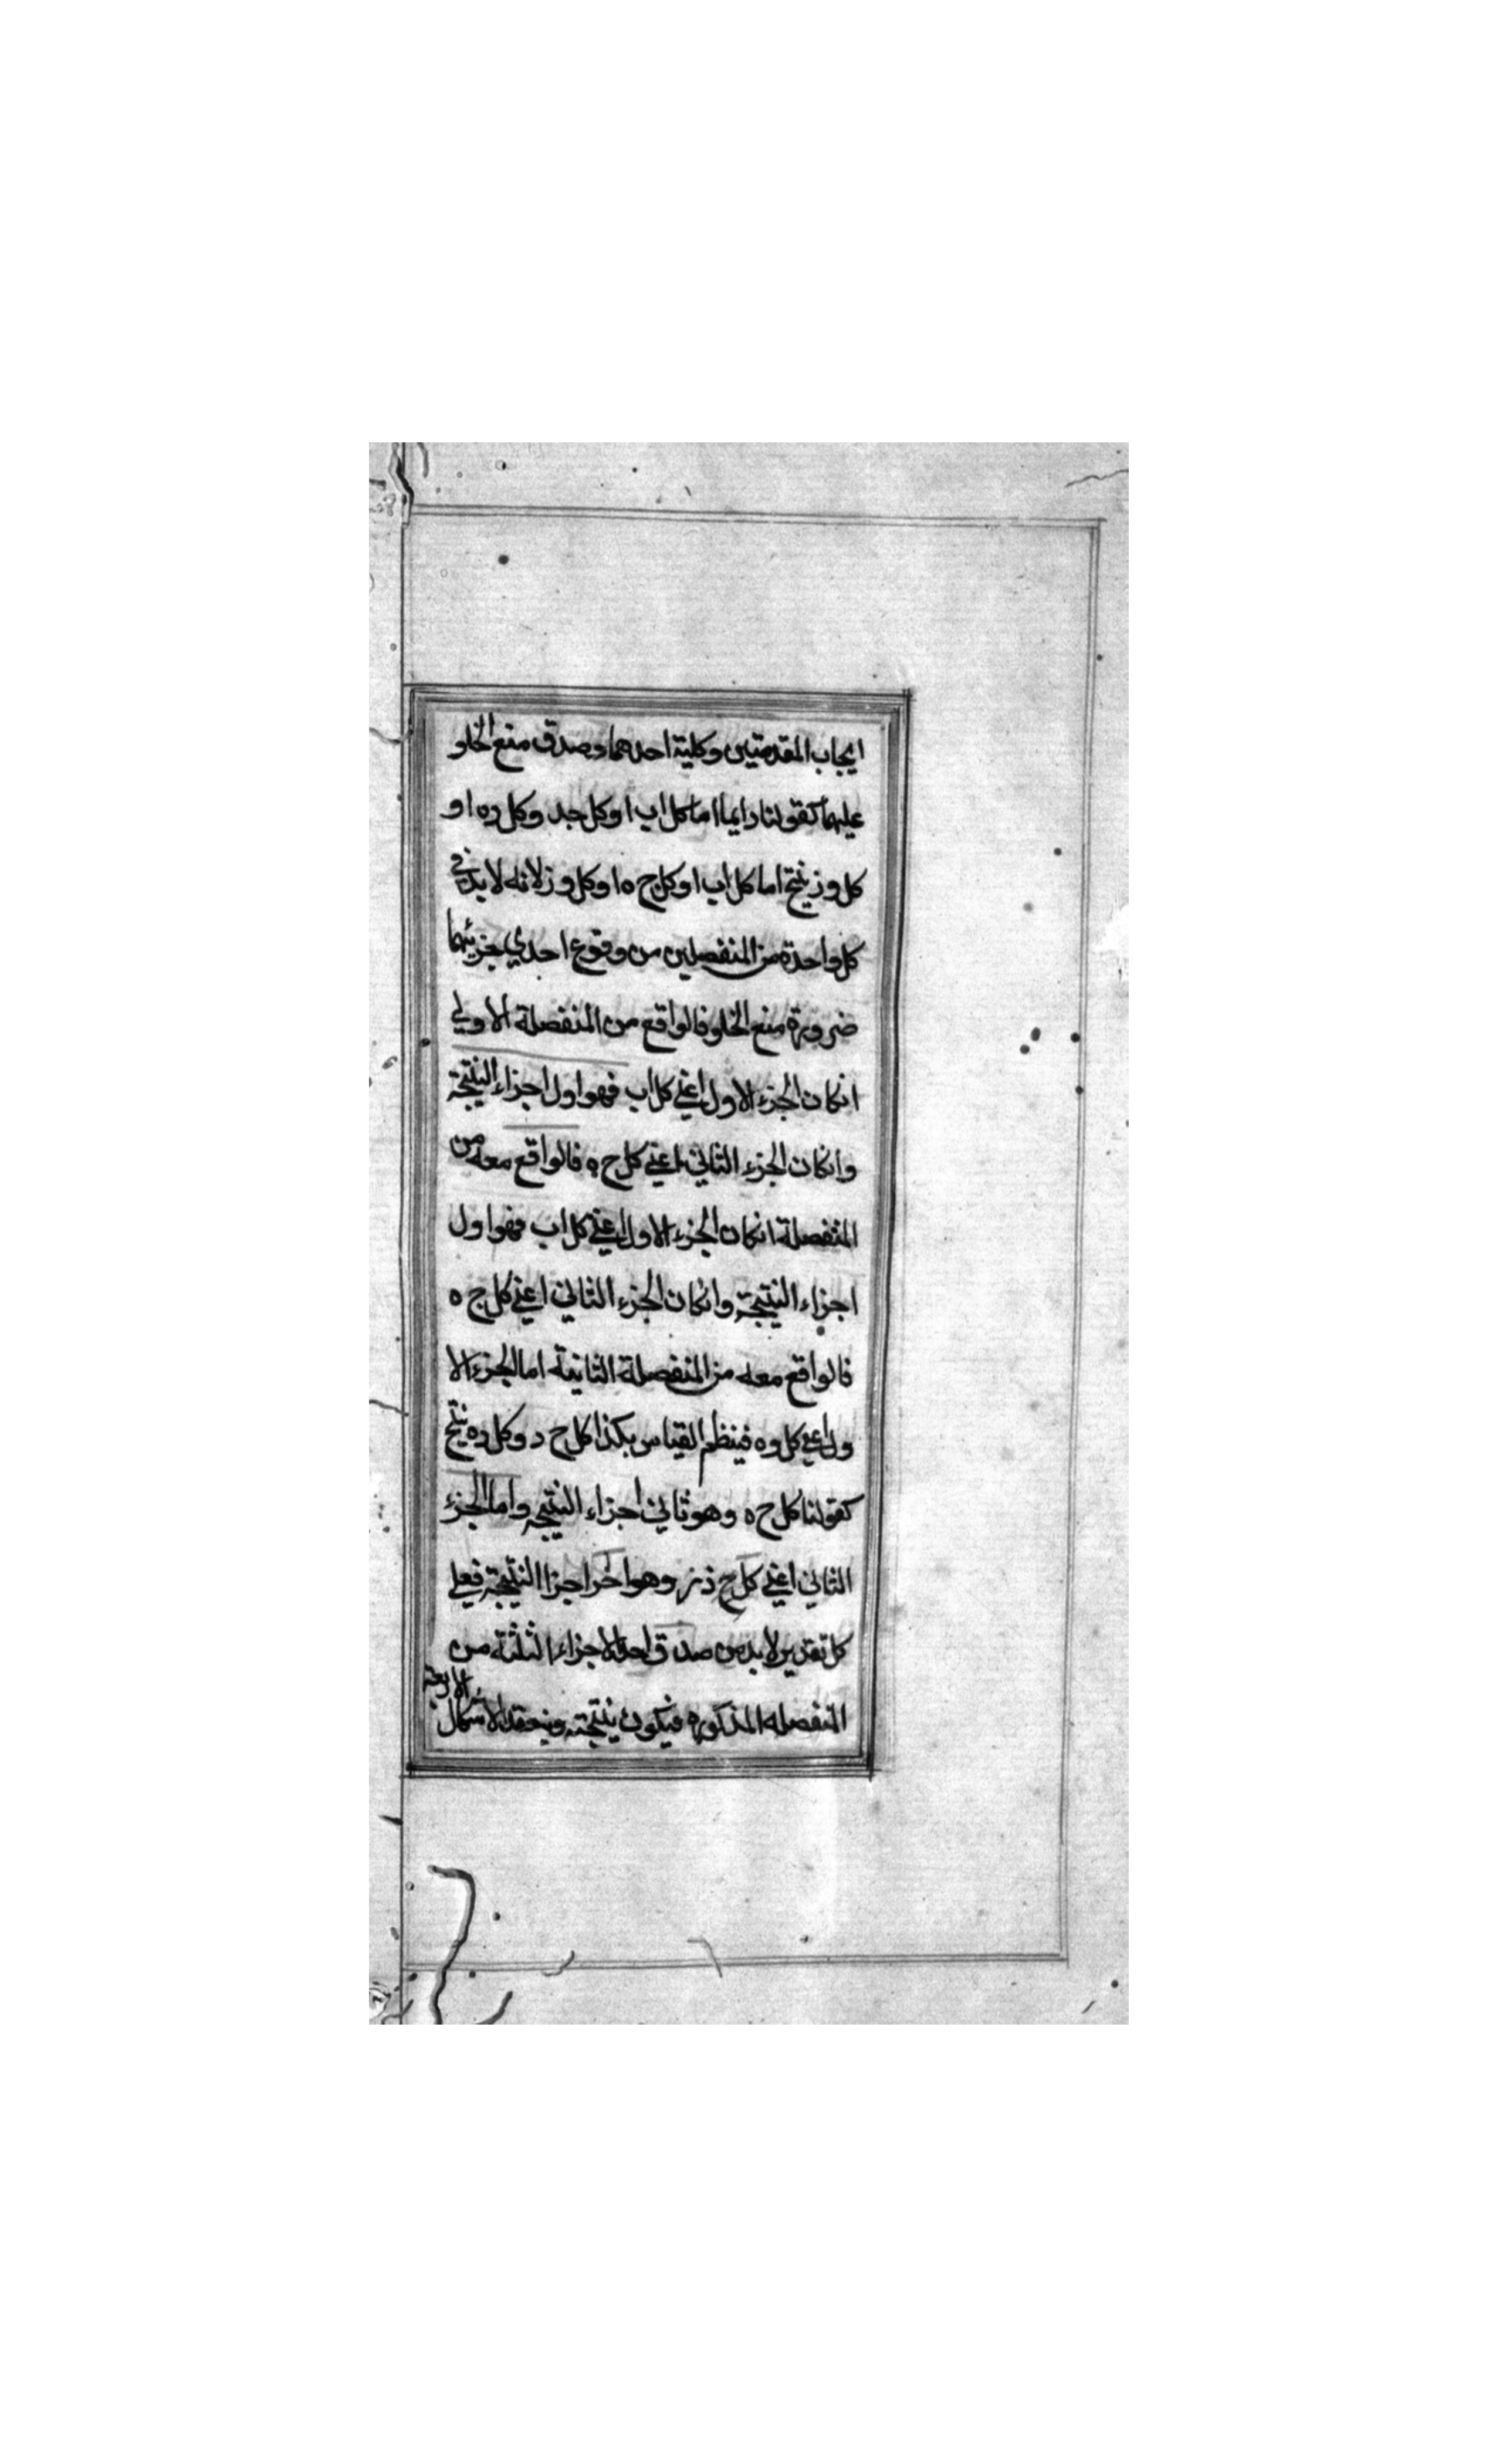 ايجاب المقدمتين وكلية احدهما وصدق منع الخلو
عليهما كقولنا دايما اما كل اب او كل جد وكل ده او
كل وز ينتج اما كل اب او كل ج ه او كل و ز لانه لا بد في
كل واحدة من المنفصلين من وقوع احدي جزئيهما
ضرورة منع الخلو فالواقع من المنفصلة الاولي
انكان الجزء الاول اعني كل اب فهو اول اجزاء النتيجة
وانكان الجزء الثاني اعني كل ج ه فالواقع معه من
المنفصلة انكان الجزء الاول اعني كل اب فهو اول
اجزاء النتيجة وانكان الجزء الثاني اعني كل ج ه
فالواقع معه من المنفصلة الثانية اما الجزء الا
ول اعني كل وه فينظم القياس بكذا كل ج د وكل ده ينتج
كقولنا كل ج ه وهو ثاني اجزاء النتيجه واما الجزء
الثاني اعني كل ج ذ ز وهو اخر اجزا النتيجة فعلي
كل تقدير لا بد من صدق احد الاجزاء الثلثة من
المنفصله المذكوره فيكون ينتجة وينعقد الاشكال
الاربعة